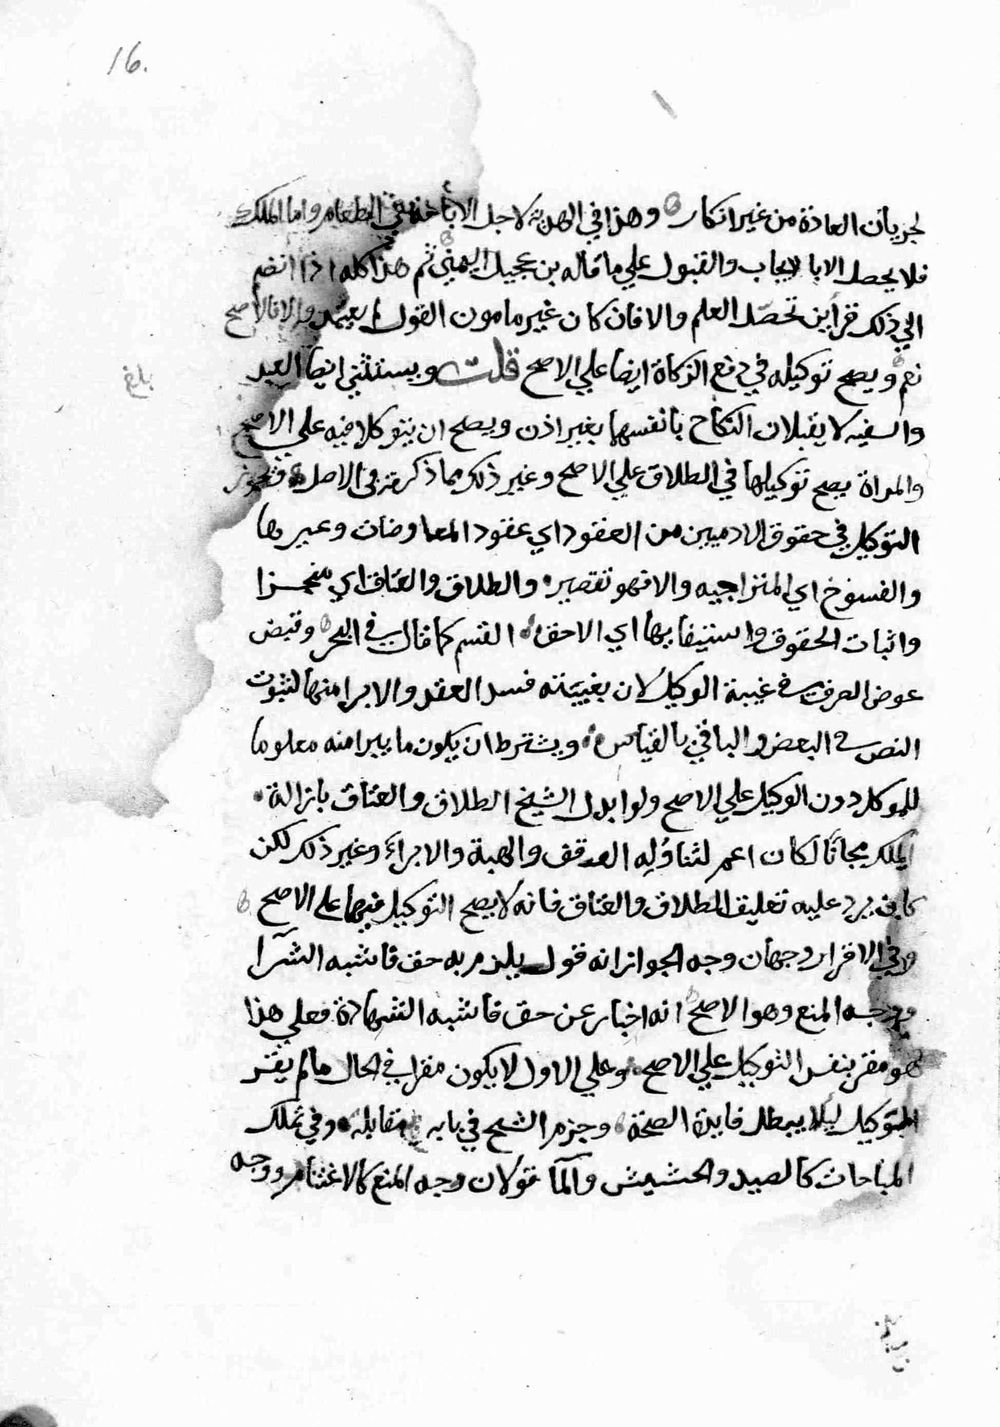 16.
لجريان العادة من غير انكار وهذا في الهدية لاجل الاباحة في الطعام واما الملك
فلا يحصل الا بالايجاب والقبول علي ما قاله بن عجيل اليمني ثم هذا كله اذا انضم
الي ذلك قراين تحصّل العلم والا فان كان غير مامون القول لم يعتمد والا فالاصح
نعم ويصح توكيله في دفع الزكاة ايضا علي الاصح قلت ويستثني ايضا العبد
والسفيه لا يقبلان النكاح بانفسهما بغير اذن ويصح ان يتوكلا فيه علي الاصح
بلغ
والمراة يصح توكيلها في الطلاق علي الاصح وغير ذلك مما ذكرته في الاصل فيجوز
التوكيل في حقوق الادميين من العقود اي عقود المعاوضات وغيرها
والفسوخ اي المتراخيه والا فهو تقصير والطلاق والعتاق اي منجزا
واثبات الحقوق واستيفايها اي الاحق القسم كما قال في البحر وقبض
عوض الصرف في غيبة الوكيل لان بغيبته فسد العقد والابرا منها لثبوت
النص في البعض والباقي بالقياس ويشترط ان يكون ما يبرا منه معلوما
للموكل دون الوكيل علي الاصح ولو ابدل الشيخ الطلاق والعتاق بازالة
الملك مجانا لكان اعم لتناوله الصدقة والهبة والابراء وغير ذلك لكن
كان يرد عليه تعليق الطلاق والعتاق فانه لا يصح التوكيل فيهما على الاصح
وفي الاقرار وجهان وجه الجواز انه قول يلزم به حق فاشبه الشرآ
ووجه المنع وهو الاصح انه اخبار عن حق فاشبه الشهادة فعلي هذا
هو مقر بنفس التوكيل علي الاصح وعلي الاول لا يكون مقرا في الحال ما لم يقر
التوكيل ليلا يبطل فايدة الصحة وجزم الشيخ في بابه بمقابله وفي تملك
المباحات كالصيد والحشيش والمآ قولان وجه المنع كالاغتنام ووجه